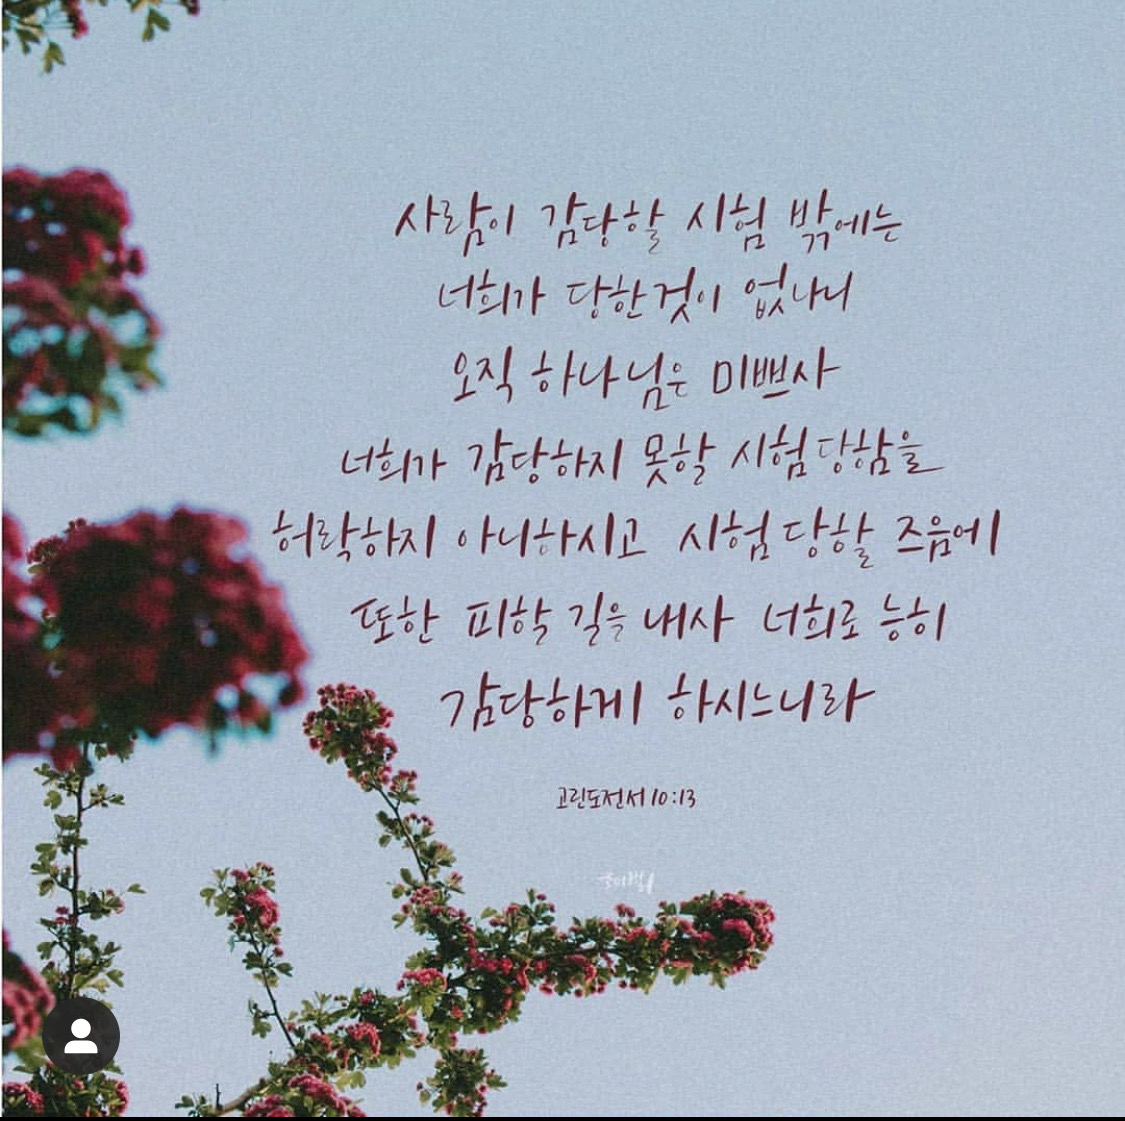 사람이 감당할 시험 밖에는
너희가 당한것이 없나니
오직 하나님은 미쁘사
너희가 감당하지 못할 시험당함을
허락하지 아니하시고 시험당할 즈음에
또한 피할 길을 내사 너희로 능히
감당하게 하시느니라
고린도전서 10:13